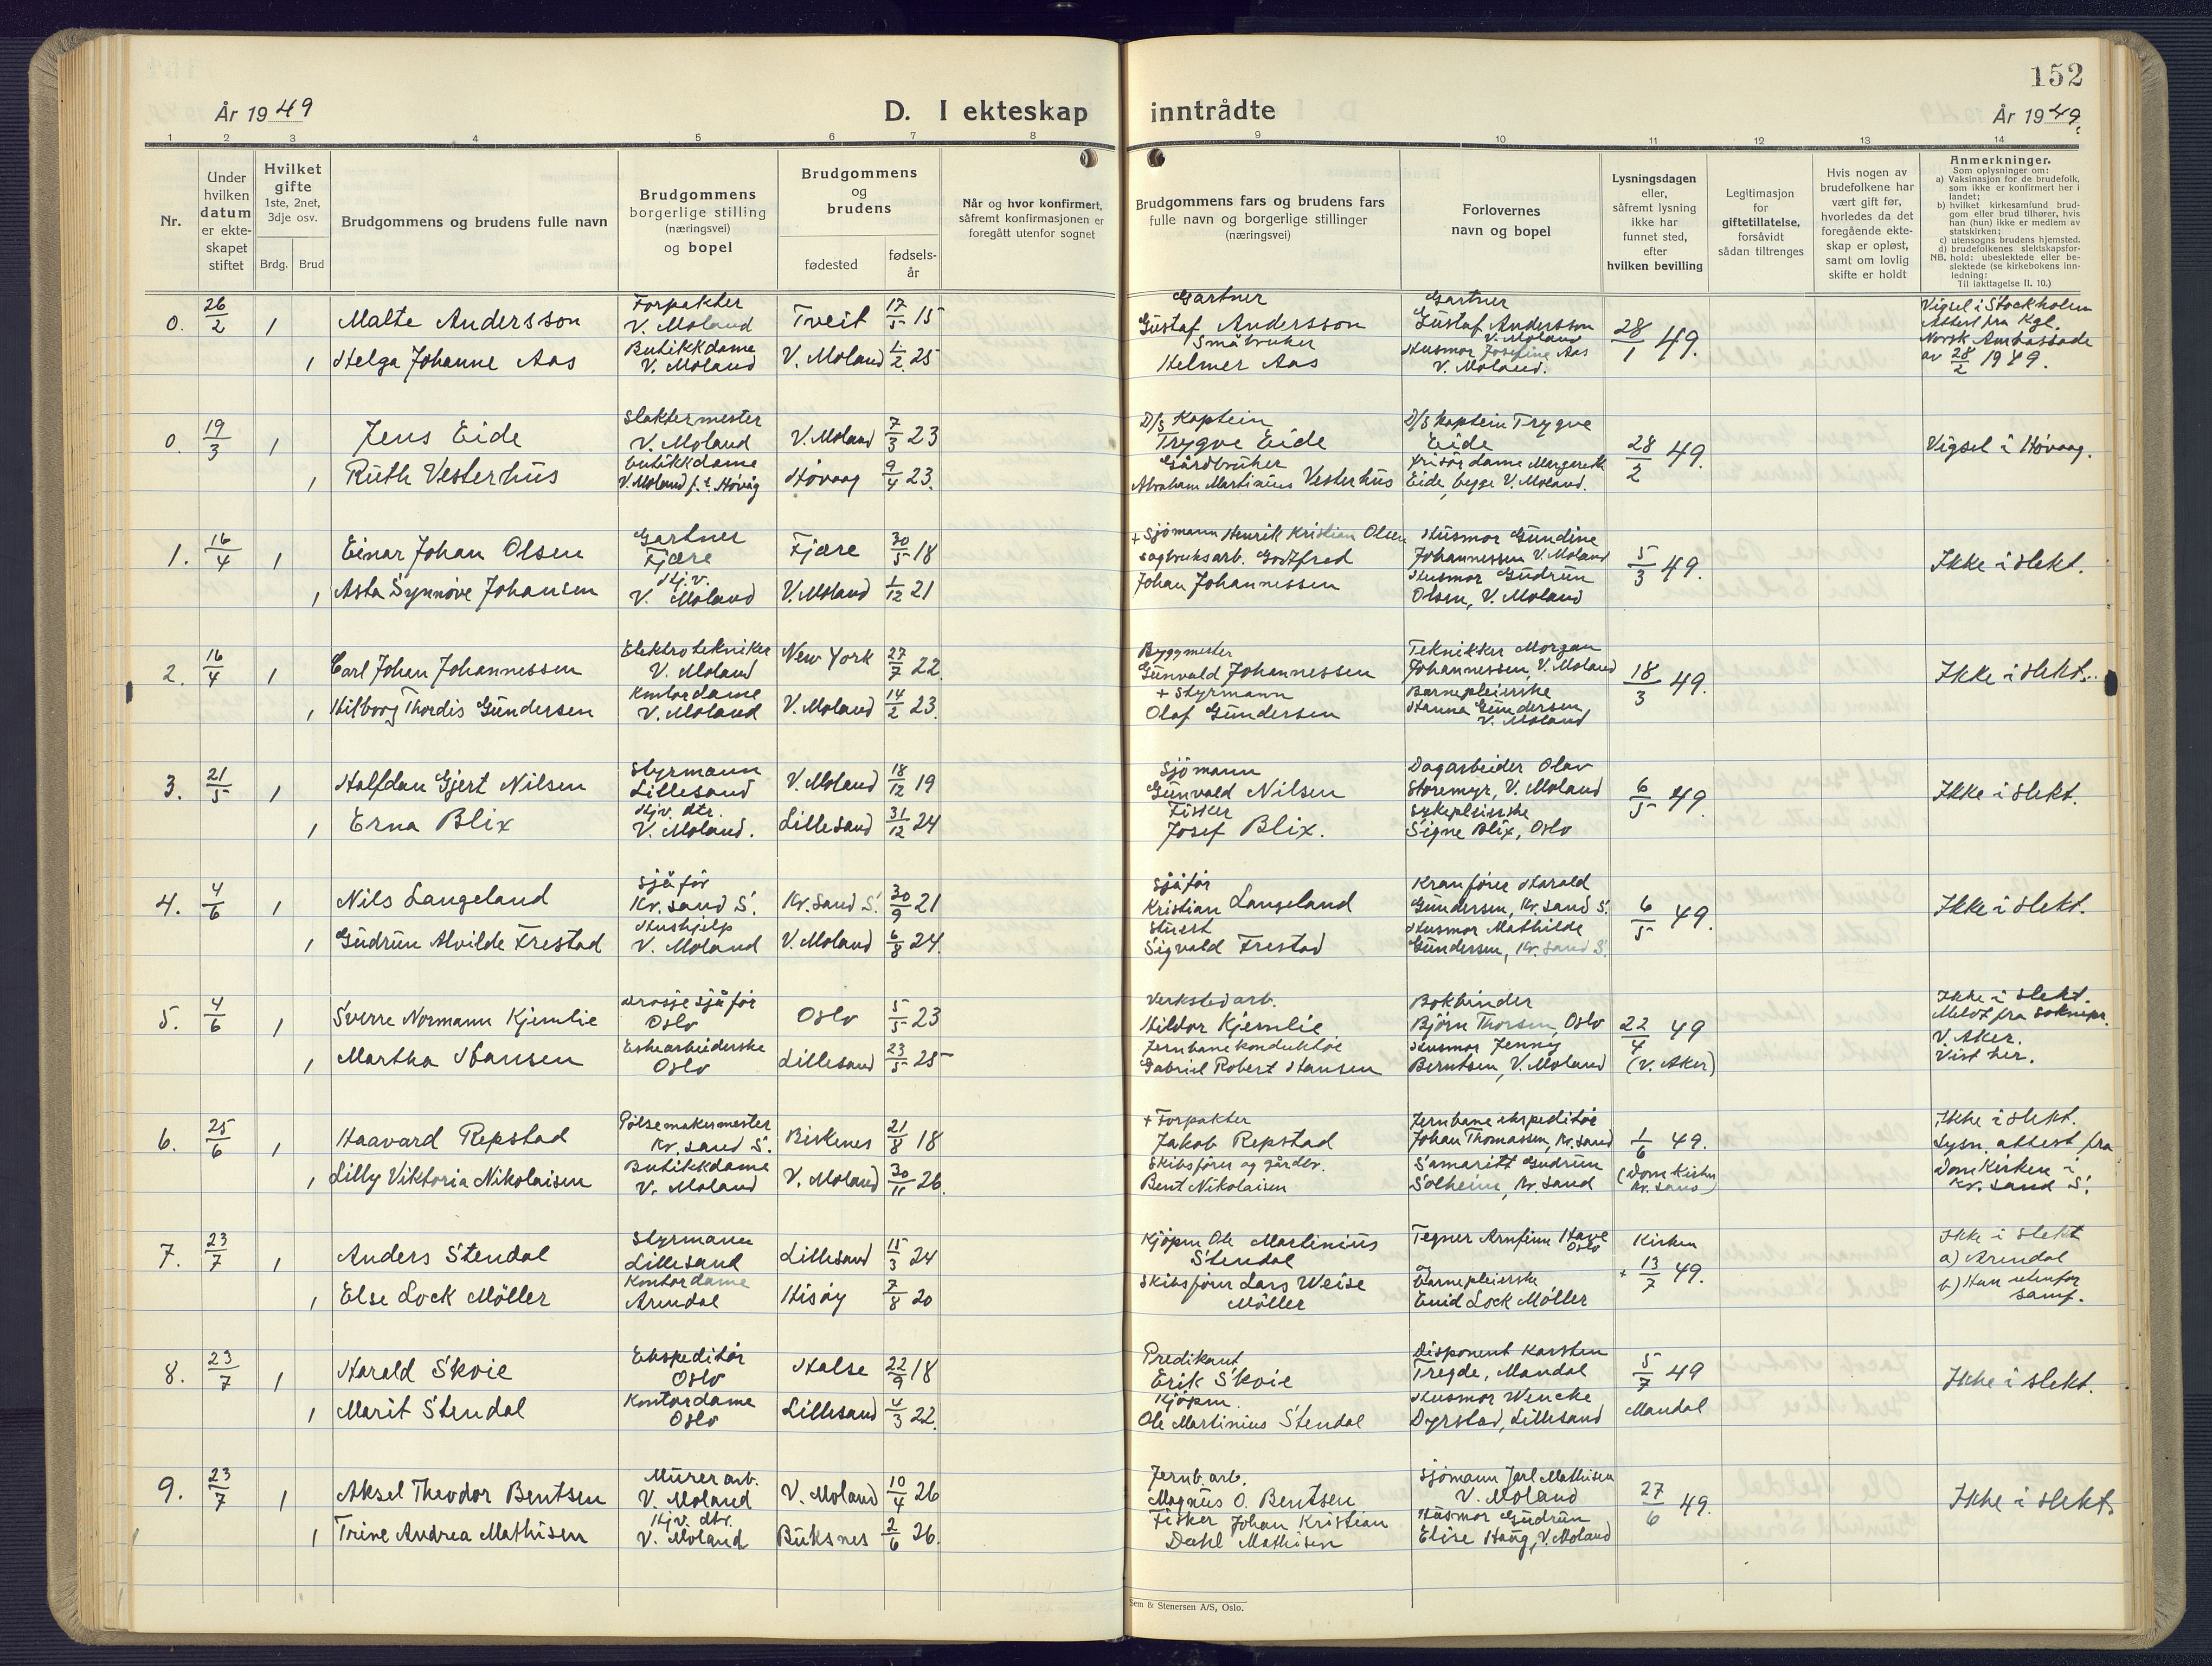 152
År 1949
D. I ekteskap
inntrådte
År 1949.
1 2 3 4 5 6 7 8 9 10 11 12 13 14
Nr.
Under
hvilken
datum
er ekte-
skapet
stiftet
Hvilket
gifte
1ste, 2net,
3dje osv.
Brdg. Brud
Brudgommens og brudens fulle navn
Brudgommens
borgerlige stilling
(næringsvei)
og bopel
Brudgommens
og
brudens
fødested
fødsels-
år
Når og hvor konfirmert,
såfremt konfirmasjonen er
foregått utenfor sognet
Brudgommens fars og brudens fars
fulle navn og borgerlige stillinger
(næringsvei)
Forlovernes
navn og bopel
Lysningsdagen
eller,
såfremt lysning
ikke har
funnet sted,
efter
hvilken bevilling
Legitimasjon
for
giftetillatelse,
forsåvidt
sådan tiltrenges
Hvis nogen av
brudefolkene har
vært gift før,
hvorledes da det
foregående ekte-
skap er opløst,
samt om lovlig
skifte er holdt
Anmerkninger.
Som oplysninger om:
a) Vaksinasjon for de brudefolk,
som ikke er konfirmert her i
landet;
b) hvilket kirkesamfund brud-
gom eller brud tilhører, hvis
han (hun) ikke er medlem av
statskirken;
c) utensogns brudens hjemsted.
d) brudefolkenes slektskapsfor-
NB. hold: ubeslektede eller be-
slektede (se kirkebokens inn-
ledning:
Til iakttagelse II. 10.)
0. 26/2 1 Malte Andersson
Forpakter
V. Moland
Tveit 17/5 15
1 Helga Johanne Aas
Butikkdame
V. Moland
V. Moland 1/2 25
Gartner
Gustaf Andersson
Småbruker
Helmer Aas
Gartner
Gustaf Andersson
V. Moland
Husmor Josefine Aas
V. Moland.
28/1 49.
Vigsel i Stockholm
Attest fra Kgl.
Norsk Ambassade
av 28/2 1949.
0 19/3 1 Jens Eide
Slaktermester
V. Moland
V. Moland 7/3 23
1 Ruth Vesterhus
butikkdame
V. Moland f.t. Høvåg
Høvaag 9/4 23.
D/S Kaptein
Trygve Eide
Gårdbruker
Abraham Martinius Vesterhus
D/S Kaptein Trygve
Eide
Frisørdame Margareth
Eide, begge V. Moland.
28/2 49.
Vigsel i Høvaag.
1. 16/4 1 Einar Johan Olsen
Gartner
Fjære
Fjære 30/5 18
1 Asta Synnøve Johansen
Hj.v.
V. Moland
V. Moland 1/12 21
+ Sjømann Henrik Kristian Olsen
sagbruksarb. Godtfred
Johan Johannessen
Husmor Gundine
Johannessen V. Moland
Husmor Gudrun
Olsen, V. Moland
5/3 49.
Ikke i slekt.
2. 16/4 1 Carl Johan Johannessen
Elektrotekniker
V. Moland
New York 27/7 22.
1 Hilborg Thordis Gundersen
Kontordame
V. Moland
V. Moland 14/2 23.
Byggmester
Gunvald Johannessen
+ Styrmann
Olaf Gundersen
Teknikker Morgan
Johannessen, V. Moland
Barnepleierske
Hanna Gundersen,
V. Moland
18/3 49.
Ikke i slekt.
3. 21/5 1 Halfdan Gjert Nilsen
Styrmann
Lillesand
V. Moland 18/12 19
1 Erna Blix
Hjv. dtr.
V. Moland.
Lillesand 31/12 24
Sjømann
Gunvald Nilsen
Fisker
Josef Blix.
Dagarbeider Olav
Storemyr, V. Moland
Sykepleierske
Signe Blix, Oslo
6/5 49.
Ikke i slekt.
4. 4/6 1 Nils Langeland
Sjåfør
Kr.sand S.
Kr.sand S. 30/9 21
1 Gudrun Alvilde Frestad
Hushjelp
V. Moland
V. Moland 6/8 24.
Sjåfør
Kristian Langeland
Stuert
Sigvald Frestad
Kranfører Harald
Gundersen, Kr.sand S.
Husmor Mathilde
Gundersen, Kr.sand S.
6/5 49.
Ikke i slekt.
5. 4/6 1 Sverre Normann Kjemlie
Drosjesjåfør
Oslo
Oslo 5/5 23
1 Martha Hansen
Eskearbeiderske
Oslo
Lillesand 23/5 25
Verkstedarb.
Hildor Kjemlie
Jernbanekonduktør
Gabriel Robert Hansen
Bokbinder
Bjørn Thorsen, Oslo
Husmor Jenny
Berntsen, V. Moland
22/4 49
(V. Aker)
Ikke i slekt.
Meldt fra soknepr.
V. Aker.
Vist her.
6. 25/6 1 Haavard Repstad
Pølsemakermester
Kr.sand S.
Birkenes 21/8 18
1 Lilly Viktoria Nikolaisen
Butikkdame
V. Moland
V. Moland 30/11 26.
+ Forpakter
Jakob Repstad
Skibsfører og gårdbr.
Bent Nikolaisen
Jernbaneekspeditør
Johan Thomassen, Kr.sand
Samaritt Gudrun
Solheim, Kr.sand
1/6 49.
(Domkirken
Kr.sand)
Ikke i slekt.
Lysn. attest fra
Domkirken i
Kr.sand S.
7. 23/7 1 Anders Stendal
Styrmann
Lillesand
Lillesand 15/3 24
1 Else Lock Möller
Kontordame
Arendal
Hisøy 7/8 20
Kjøpm Ole Martinius
Stendal
Skibsfører Lars Weise
Möller
Tegner Arnfinn Have
Oslo
og
Barnepleierske
Enid Lock Möller
Kirken
+ 13/7 49.
Ikke i slekt
a) Arendal
b) Hun utenfor
samf.
8. 23/7 1 Harald Skoie
Ekspeditør
Oslo
Halse 22/9 18
1 Marit Stendal
Kontordame
Oslo
Lillesand 4/3 22.
Predikant
Erik Skoie
Kjøpm.
Ole Martinius Stendal
Disponent Karsten
Tregde, Mandal
Husmor Wencke
Dyrstad, Lillesand
5/7 49
Mandal
Ikke i slekt.
9. 23/7 1 Aksel Theodor Bentsen
Murerarb.
V. Moland
V. Moland 10/4 26
1 Trine Andrea Mathisen
Hjv. dtr.
V. Moland
Buksnes 2/6 26.
Jernb. arb.
Magnus O. Bentsen
Fisker Johan Kristian
Dahl Mathisen
Sjømann Jarl Mathisen
V. Moland
Husmor Gudrun
Elise Haug, V. Moland
27/6 49.
Ikke i slekt.
Sem & Stenersen A/S, Oslo.